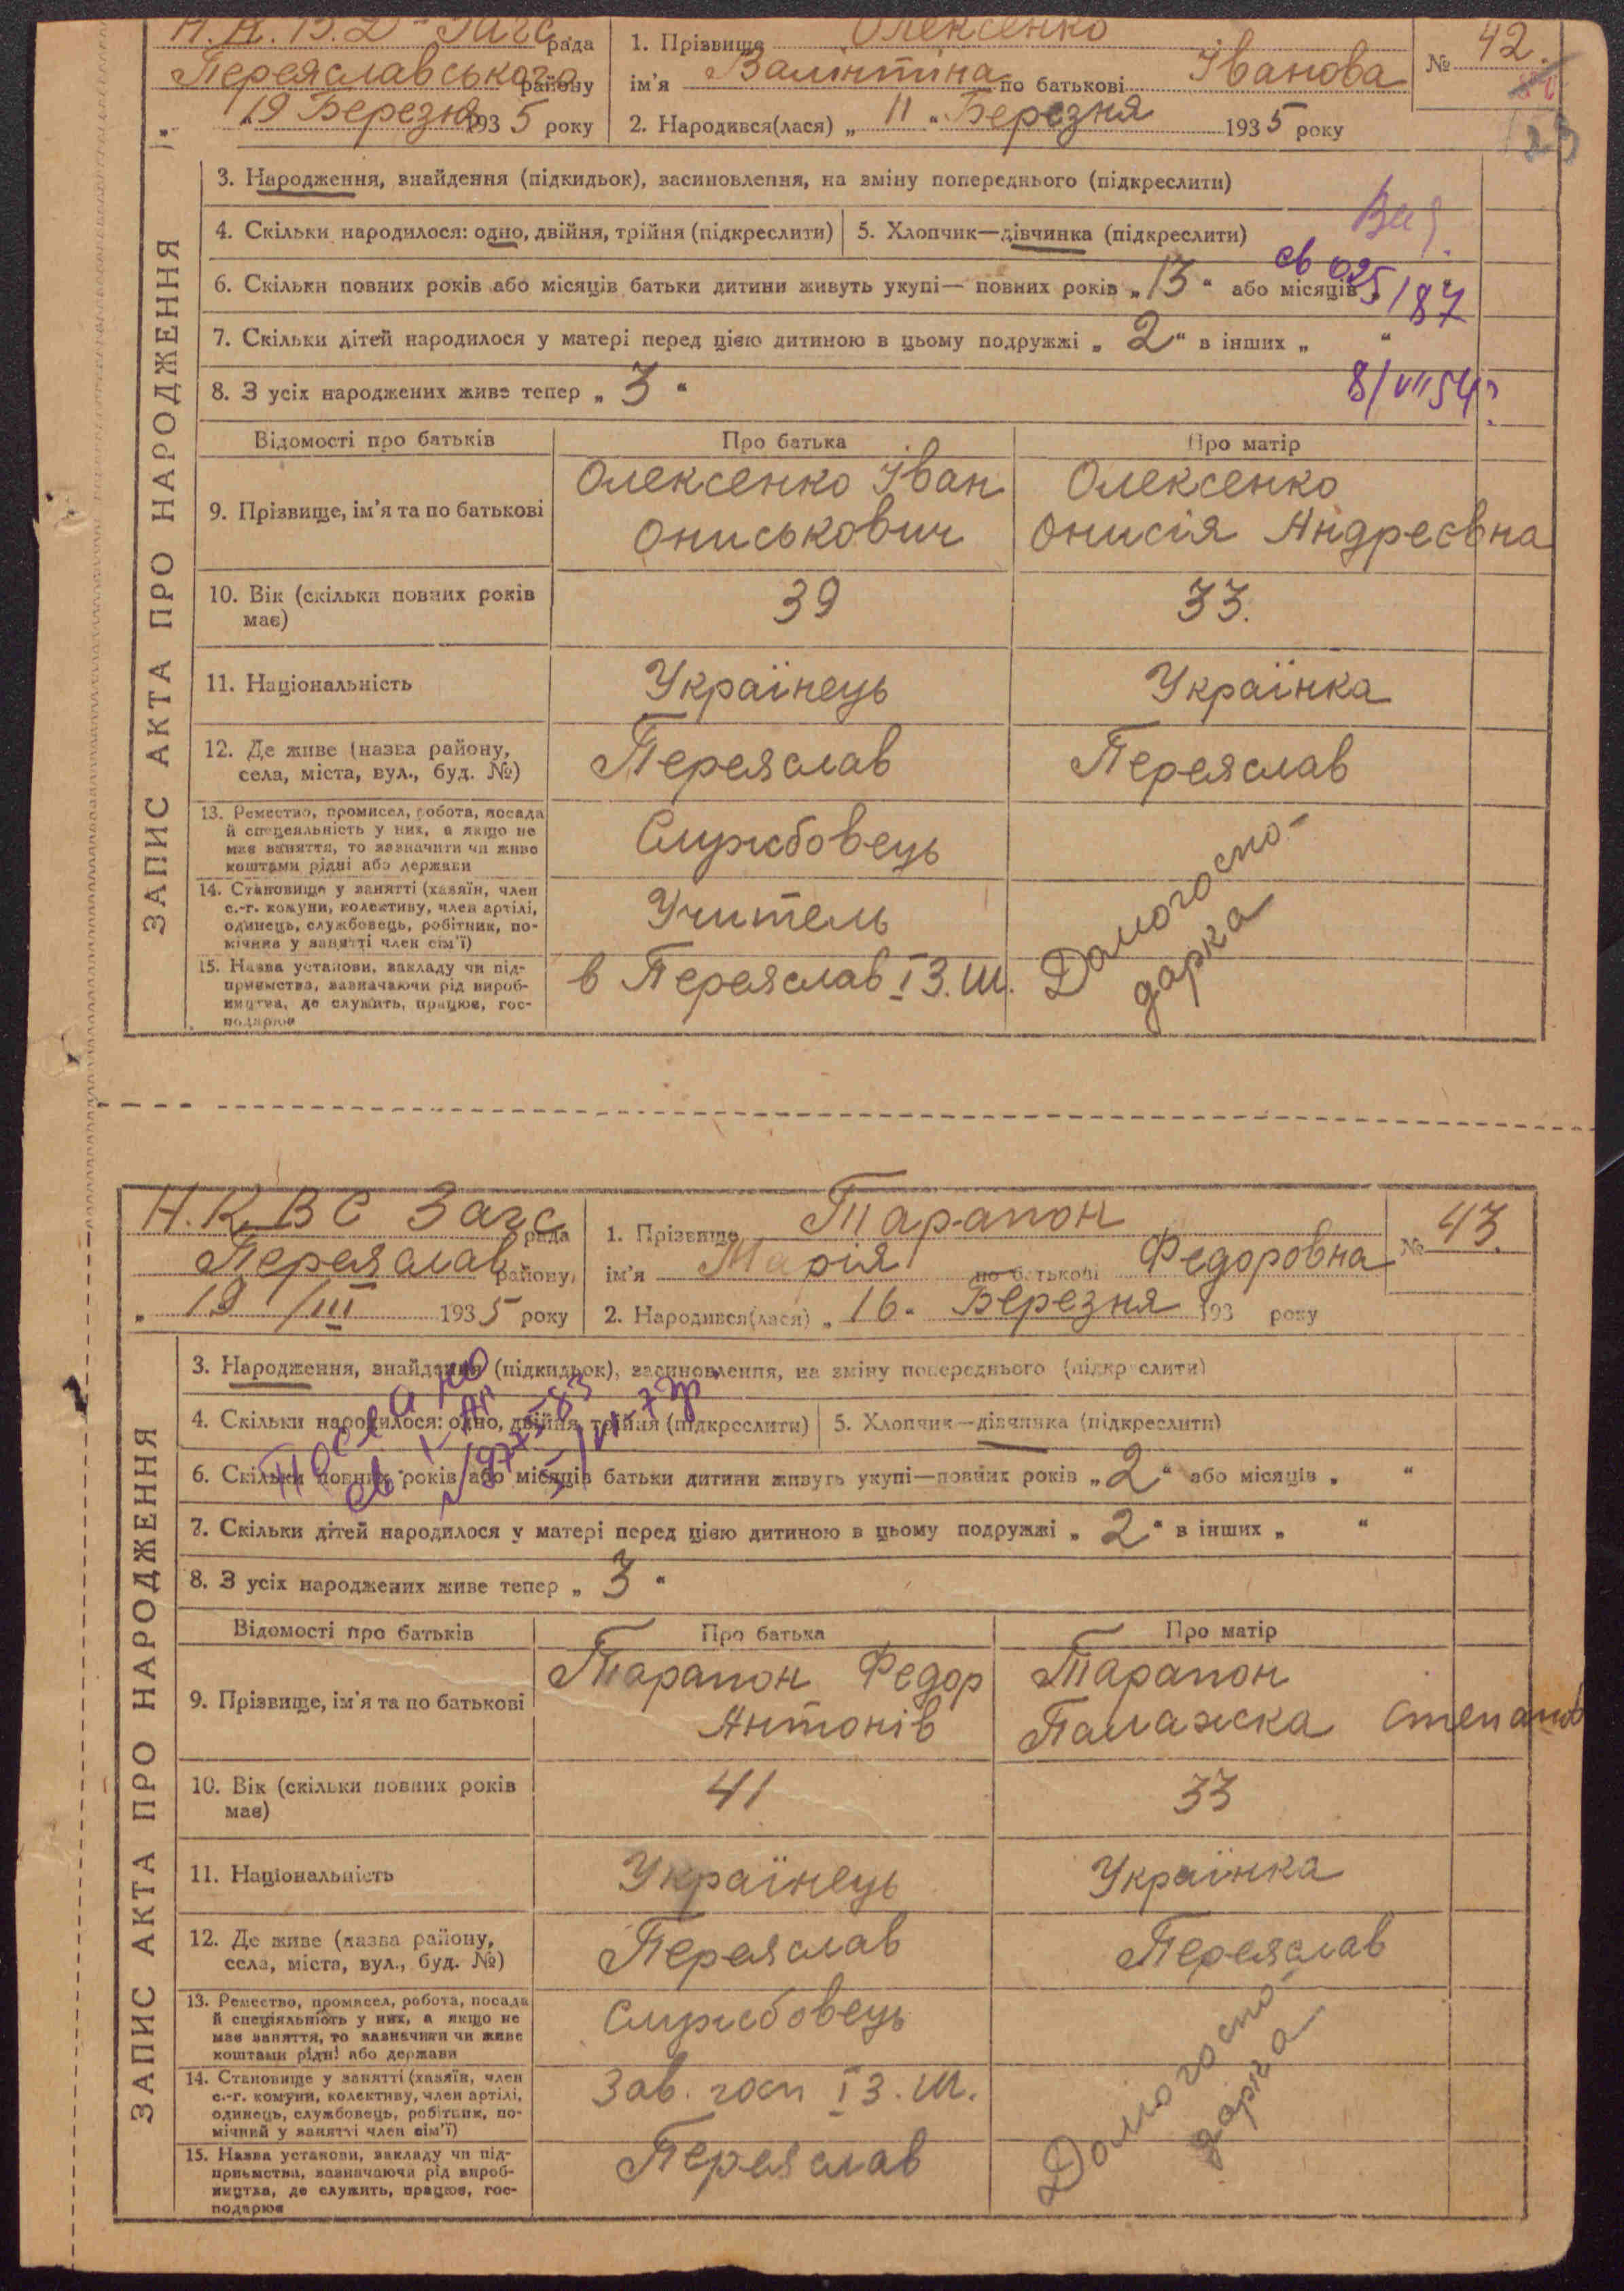 Загс рада
Переяславського району
" 19 Березня 1935 року
1. Прізвище Олексенко
ім'я Валінтіна по батькові Іванова
№ 42.
2. Народився(лася) „ 11 " Березня 1935 року
23
ЗАПИС АКТА ПРО НАРОДЖЕННЯ
3. Народження, знайдення (підкидьок), засиновлення, на зміну попереднього (підкреслити)
4. Скільки народилося: одно, двійня, трійня (підкреслити) 5. Хлопчик—дівчинка (підкреслити)
6. Скільки повних років або місяців батьки дитини живуть укупі— повних років „ 13 " або місяців „
св 025/87
7. Скільки дітей народилося у матері перед цією дитиною в цьому подружжі „ 2 " в інших „ "
8. З усіх народжених живе тепер „ 3 "
8/VII 54
Відомості про батьків Про батька Про матір
9. Прізвище, ім'я та по батькові
Олексенко Іван Ониськович
Олексенко Онисія Андреєвна
10. Вік (скільки повних років має) 39 33.
11. Національність Українець Українка
12. Де живе (назва району, села, міста, вул., буд. №) Переяслав Переяслав
13. Ремество, промисел, робота, посада
й спеціяльність у них, а якщо не
має заняття, то зазначити чи живе
коштами рідні або держави
Службовець
14. Становище у занятті (хазяїн, член
с.-г. комуни, колективу, член артілі,
одинець, службовець, робітник, по-
мічник у занятті член сім'ї)
Учитель
15. Назва установи, закладу чи під-
приємства, зазначаючи рід вироб-
ництва, де служить, працює, гос-
подарює
в Переяслав І З. Ш.
Домогоспо-
дарка
Н.К.В С Загс рада
Переяслав району
" 19 /III 1935 року
1. Прізвище Тарапон
ім'я Марія по батькові Федоровна
№ 43.
2. Народився(лася) „ 16 " Березня 193 року
ЗАПИС АКТА ПРО НАРОДЖЕННЯ
3. Народження, знайдення (підкидьок), засиновлення, на зміну попереднього (підкреслити)
4. Скільки народилося: одно, двійня, трійня (підкреслити) 5. Хлопчик—дівчинка (підкреслити)
6. Скільки повних років або місяців батьки дитини живуть укупі—повних років „ 2 " або місяців „ "
7. Скільки дітей народилося у матері перед цією дитиною в цьому подружжі „ 2 " в інших „ "
8. З усіх народжених живе тепер „ 3 "
Відомості про батьків Про батька Про матір
9. Прізвище, ім'я та по батькові
Тарапон Федор Антонів
Тарапон Памажска Степанів
10. Вік (скільки повних років має) 41 33
11. Національність Українець Українка
12. Де живе (назва району, села, міста, вул., буд. №) Переяслав Переяслав
13. Ремество, промисел, робота, посада
й спеціяльність у них, а якщо не
має заняття, то зазначити чи живе
коштами рідні або держави
Службовець
14. Становище у занятті (хазяїн, член
с.-г. комуни, колективу, член артілі,
одинець, службовець, робітник, по-
мічний у занятті член сім'ї)
Зав. госп І З. Ш.
15. Назва установи, закладу чи під-
приємства, зазначаючи рід вироб-
ництва, де служить, працює, гос-
подарює
Переяслав
Домогоспо-
дарка